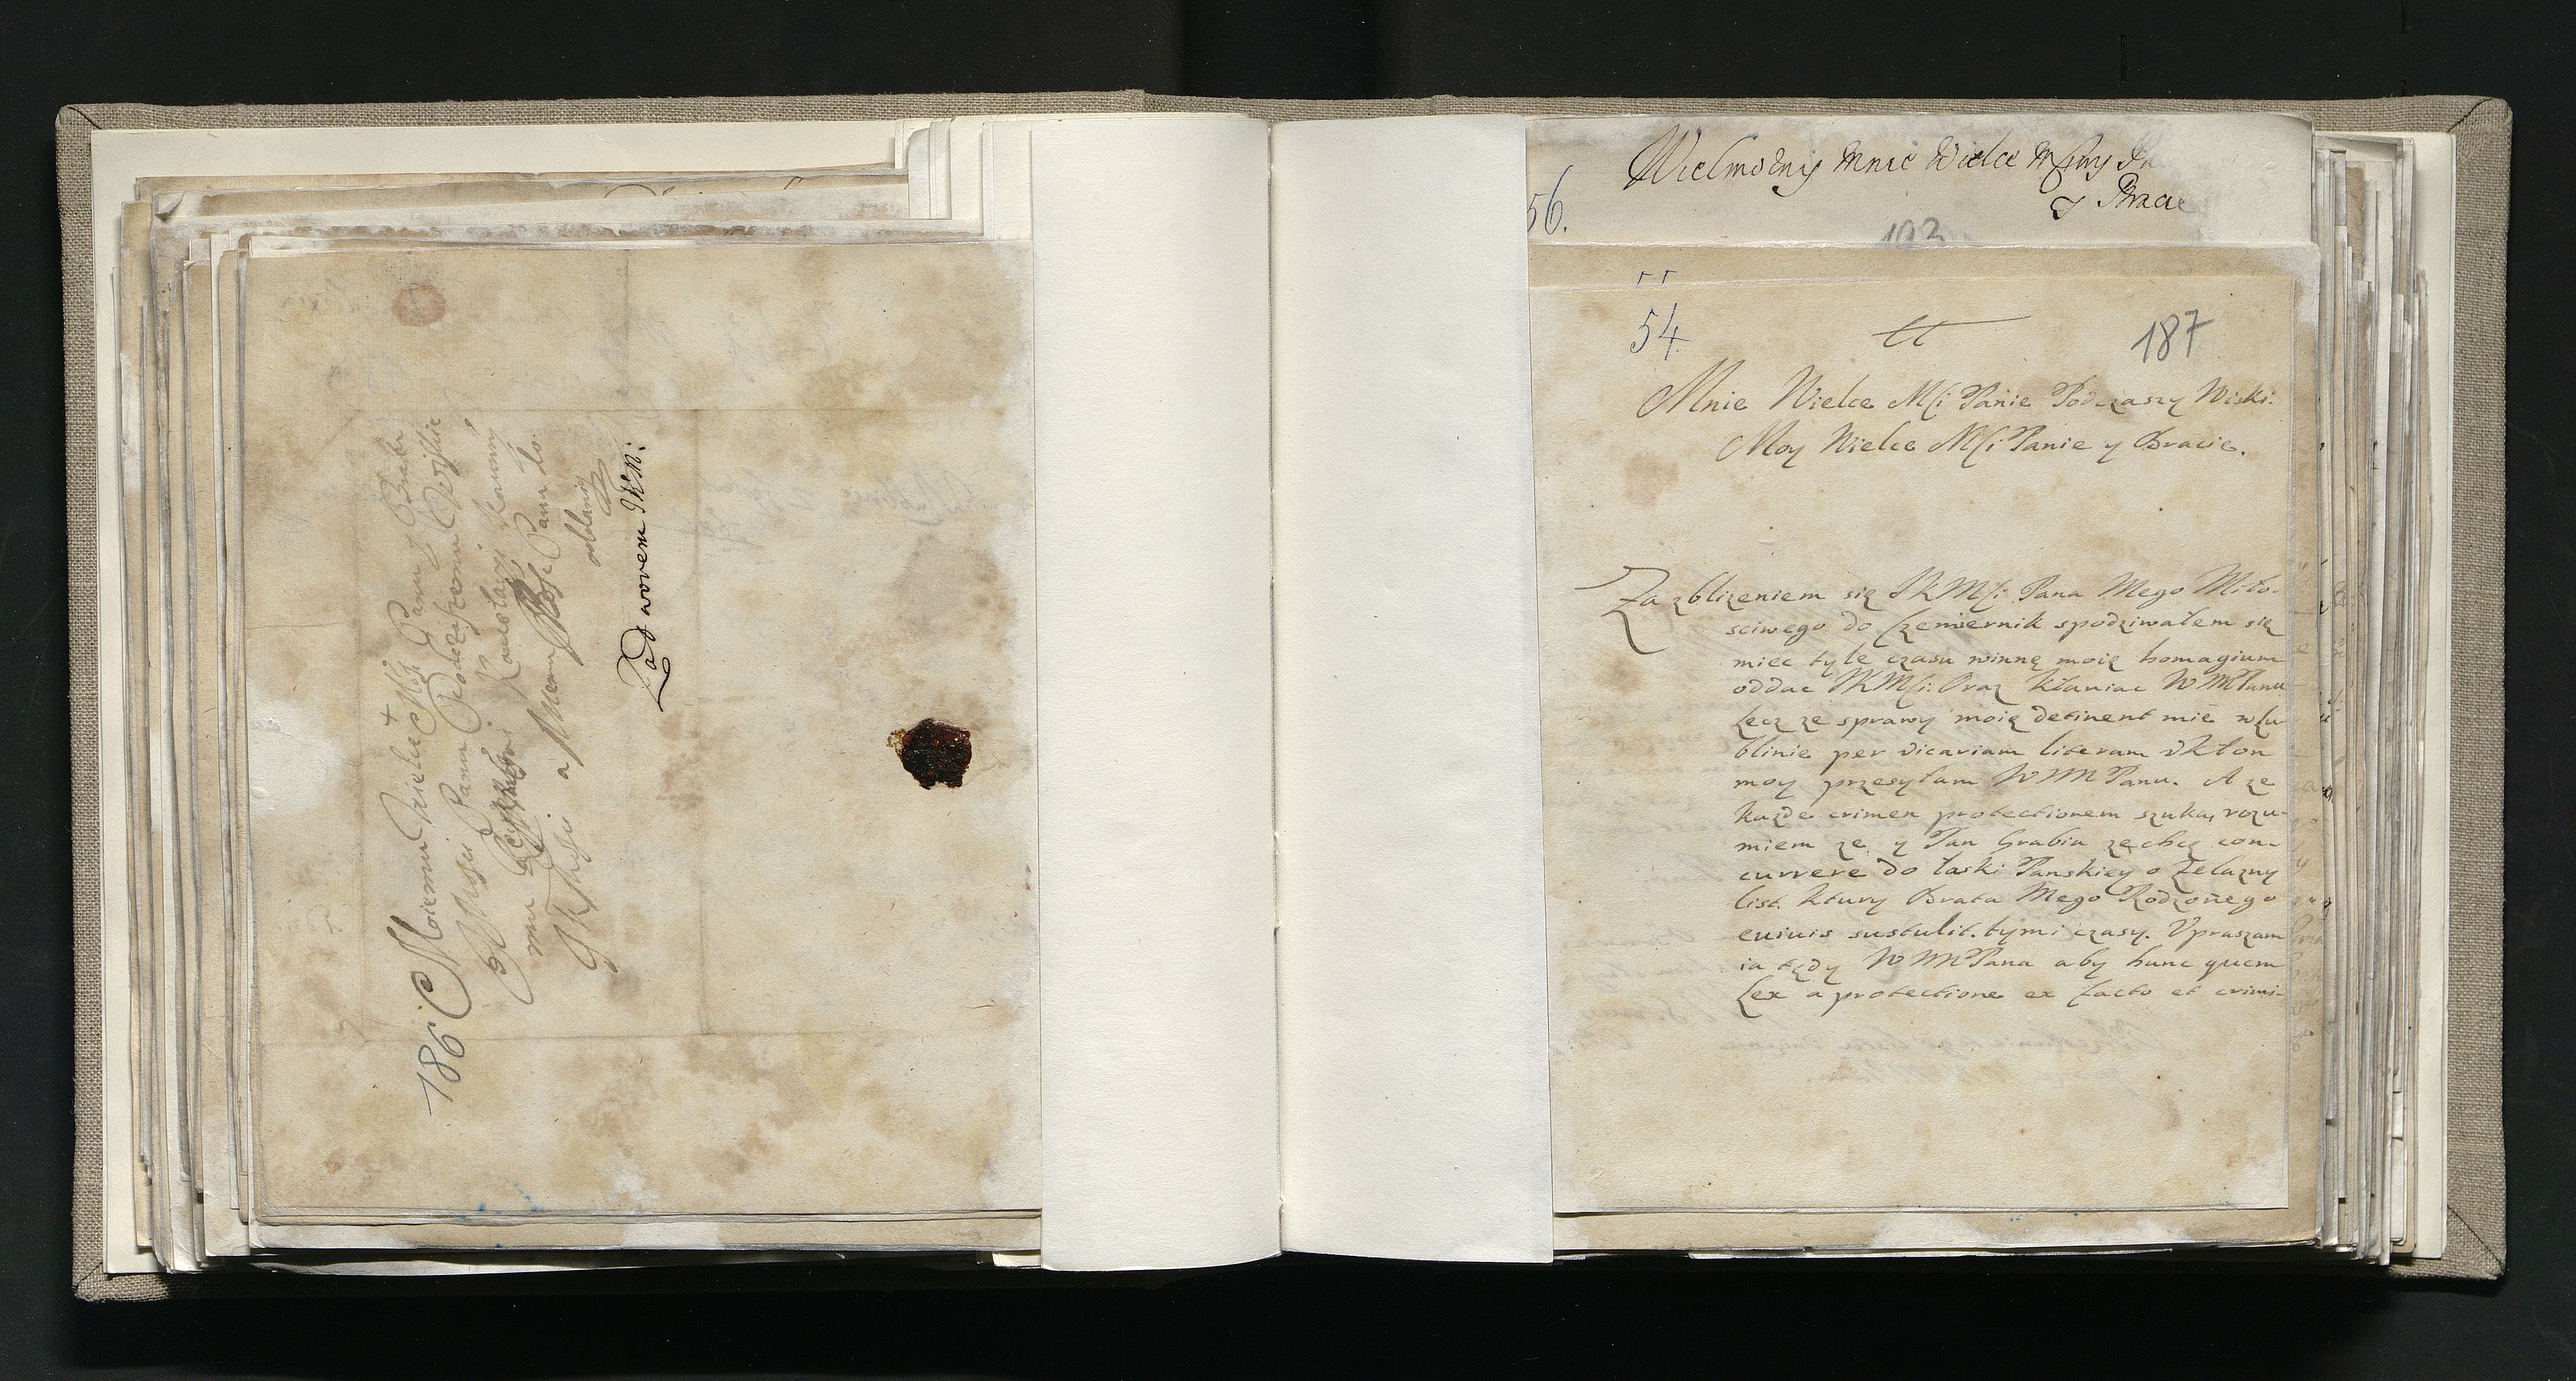 186
Moiemu Wielce Mśći Panu y Bratu
Panu Podczaszemu Wizkie
mu
a Memu Panu do
oddania
Za dworem JKM:
Wielmozny Mnie Wielce Mśćiwy
y Bracie
56.
193
55
54
187
Mnie Wielce Mśći Panie Podczaszy Wiski.
Moy Wielce Mśći Panie y Bracie.
Za zblizeniem się JKMśći Pana Mego Miło-
sciwego do Czemiernik spodziwałem się
miec tyle czasu winnę moię homagium
oddac JKMśći. Oraz kłaniac WMMPanu
Lecz ze sprawy moię detinent mie w Lu-
blinie per vicariam literam vkłon
moy przesyłam WMMPanu. A ze
kazde crimen protectionem szuka, rozu-
miem ze y Pan Grabia zechcę con-
currere do łaski Panskiey o Zelazny
list. ktury Brata Mego Rodzonego
euiuis sustulit. tymi czasy. Vpraszam
ia tędy WMMPana aby hunc quem
Lex a protectione ex facto et crimi-